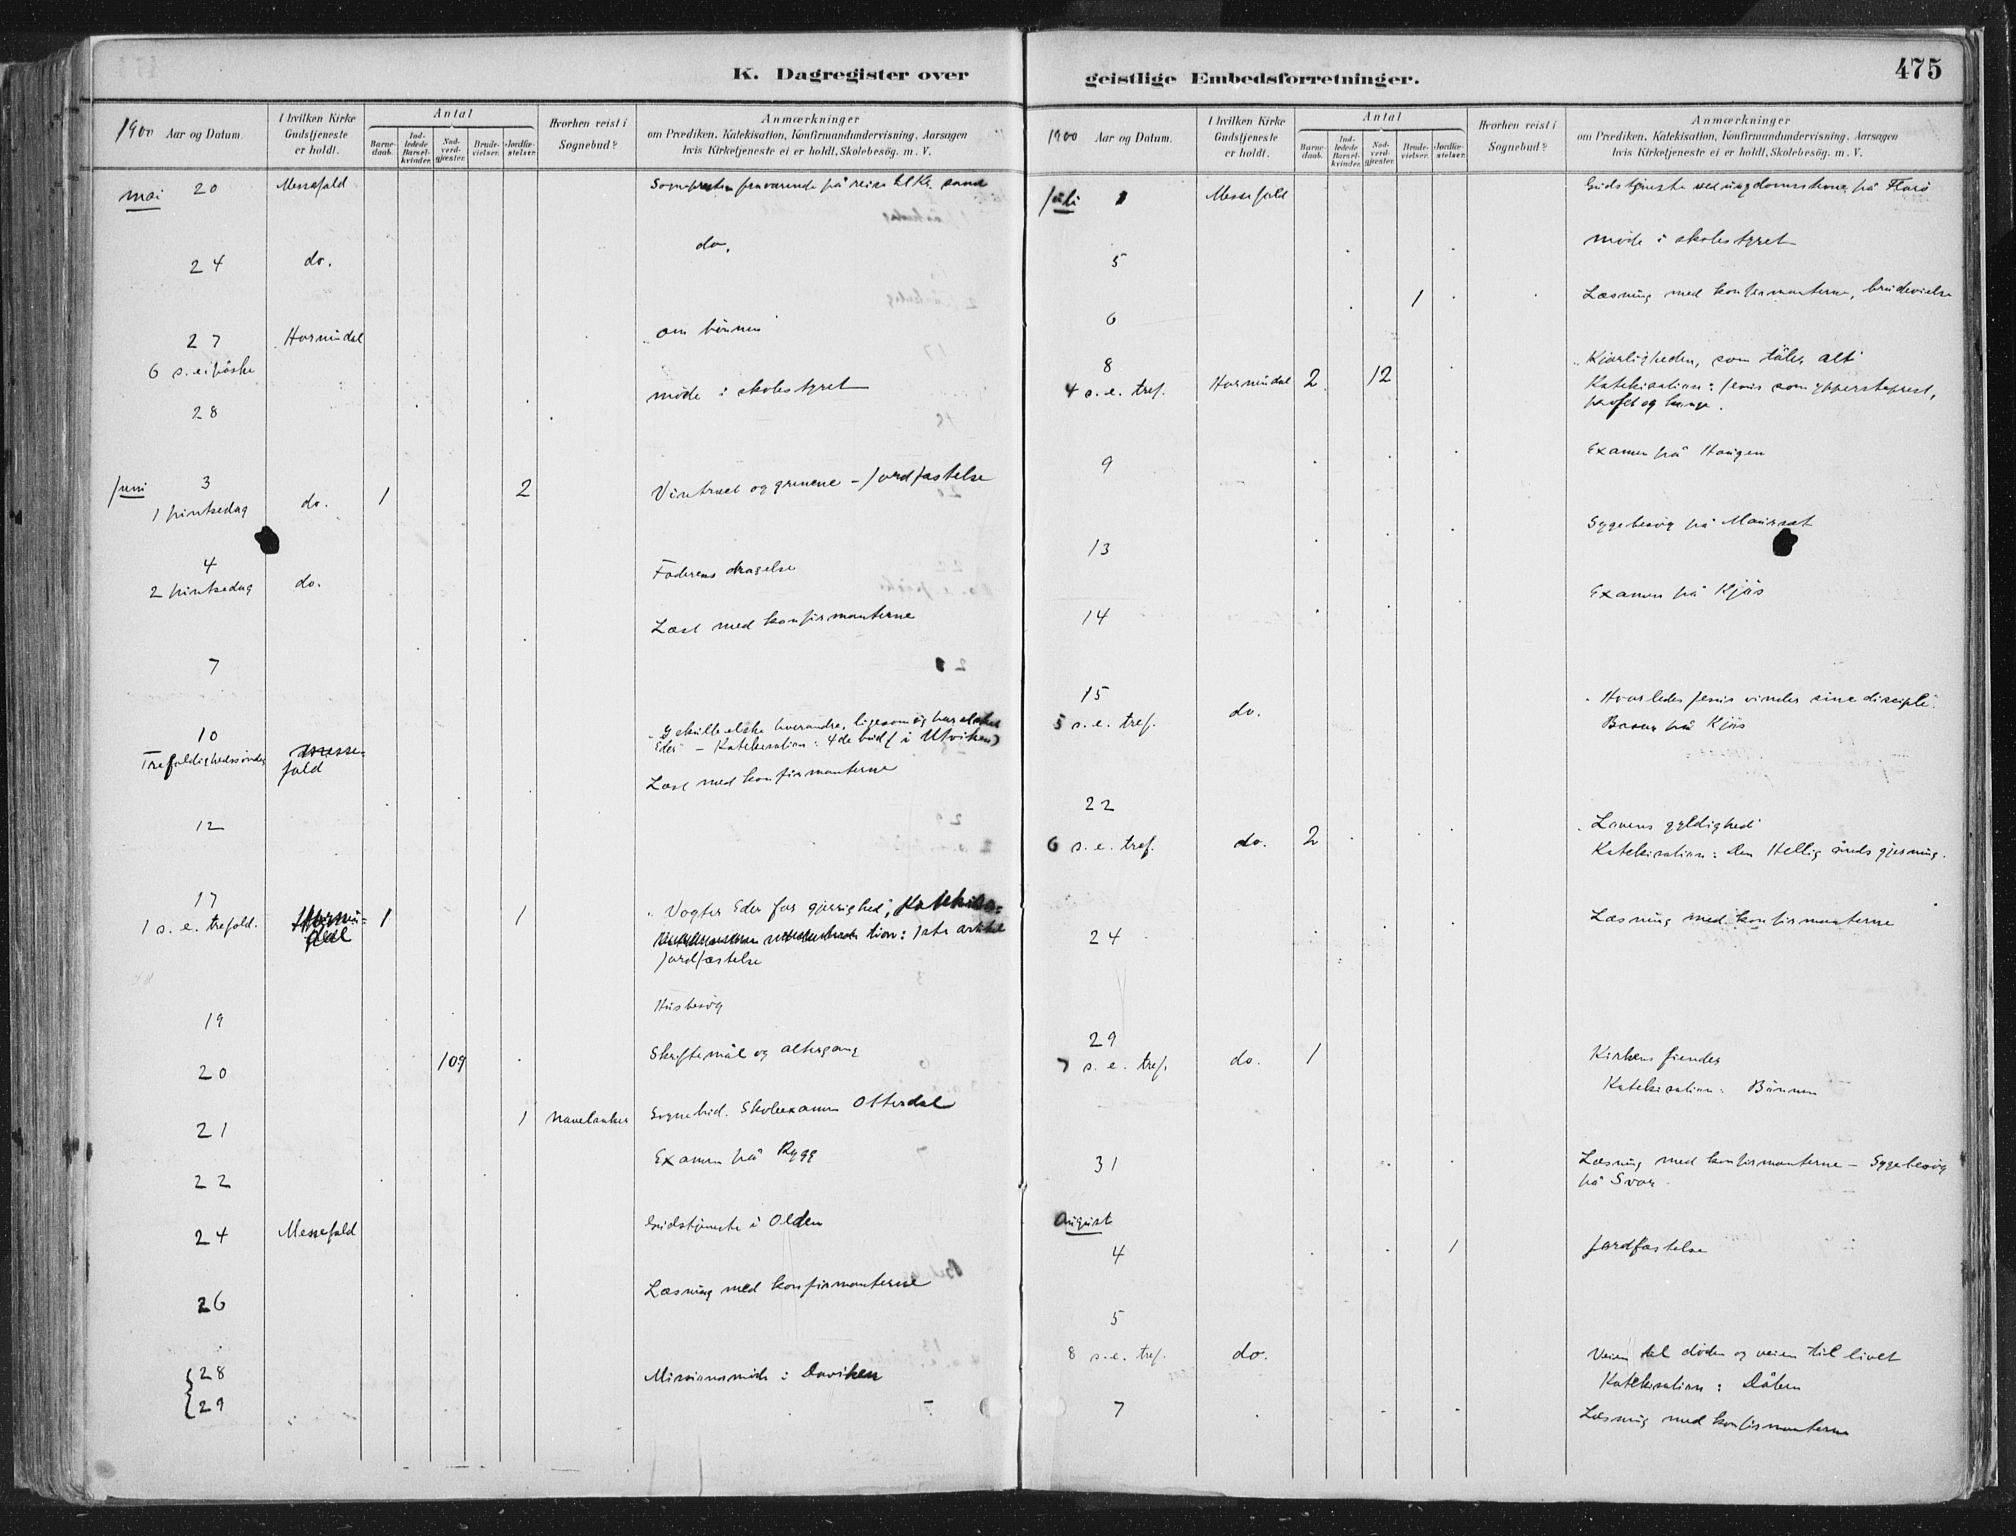 K. Dagregister over
1900 Aar og Datum.
I hvilken Kirke Gudstjeneste er holdt.
Antal
Barne-daab.
Ind-ledede Barsel-kvinder.
Nad-verd-gjester.
Brude-vielser.
Jordfæ-stelser.
Hvorhen reist i Sognebud?
Anmærkninger
om Prædiken, Katekisation, Konfirmandundervisning, Aarsagen
hvis Kirketjeneste ei er holdt, Skolebesög. m. V.
mai 20 Messefald Sognepresten fraværende på reise til Kr. sand
24 do. do.
27 Hornindal "om bönnen"
6 s. e. påske
28 möde i skolestyret
juni 3
1 pintsedag do. 1 2 Vintræet og grenene - Jordfæstelse
4
2 pintsedag do. Faderens dragelse
7 Læst med konfirmanterne
10
Trefoldighedssöndag Messe-fald "I skulle elske hverandre, ligesom jeg har elsket
Eder" - Katekisation: 4de bud (i Utviken)
12 Læst med konfirmanterne
17
1 s. e. trefold. Hornin-dal 1 1 "Vogter Eder for gjerrighed", Katekisa-
tion: 1ste artikel
Jordfæstelse
19 Husbesög
20 109 Skriftemål og altergang
21 1 Navelsaker Sognebud. Skoleexamen Otterdal
22 Examen på Rygg
24 Messefald Gudstjeneste i Olden
26 Læsning med konfirmanterne
28
29 Missionsmöde i Daviken
geistlige Embedsforretninger.
475
1900 Aar og Datum.
I hvilken Kirke Gudstjeneste er holdt.
Antal
Barne-daab.
Ind-ledede Barsel-kvinder.
Nad-verd-gjester.
Brude-vielser.
Jordfæ-stelser.
Hvorhen reist i Sognebud?
Anmærkninger
om Prædiken, Katekisation, Konfirmandundervisning, Aarsagen
hvis Kirketjeneste ei er holdt, Skolebesög. m. V.
juli 1 Messefald Gudstjeneste ved ungdomsstevne på Florö
5 möde i skolestyret
6 1 Læsning med konfirmanterne, brudevielse
8 "Kjærligheden, som tåler alt"
4 s. e. tref. Hornindal 2 12 Katekisation: Jesus som ypperstepræst,
profet og konge.
9 Examen på Haugen
13 Sygebesög på Maurset
14 Examen på Kjös
15 "Hvorledes Jesus vinder sine disciple"
5 s. e. tref. do. Basar på Kjös
22 "Lovens gyldighed"
6 s. e. tref. do. 2 Katekisation: Den Hellig ånds gjerning.
24 Læsning med konfirmanterne
29 Kirkens fiender
7 s. e. tref. do. 1 Katekisation: Bönnen
31 Læsning med konfirmanterne - Sygebesög
på Svor
August
4 1 Jordfæstelse
5
8 s. e. tref. do. Veien til döden og veien til livet
Katekisation: Dåben
7 Læsning med konfirmanterne